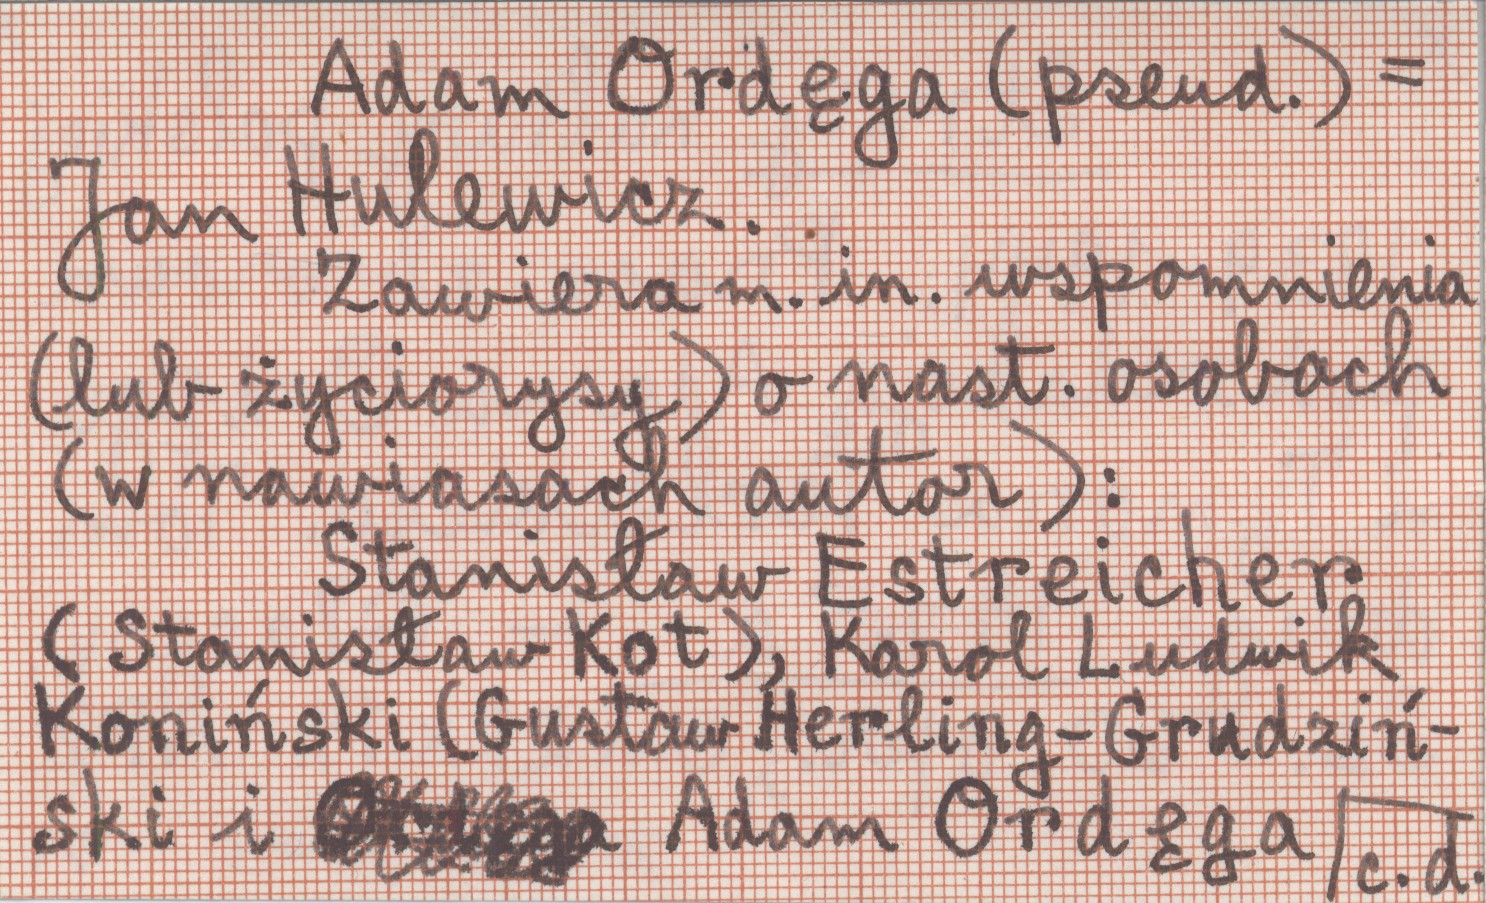 Adam Ordęga (pseud.) =
Jan Hulewicz.
Zawiera m. in. wspomnienia
(lub życiorysy) o nast. osobach
(w nawiasach autor):
Stanisław Estreicher
(Stanisław Kot), Karol Ludwik
Koniński (Gustaw Herling-Grudziń-
ski i Adam Ordęga c.d.